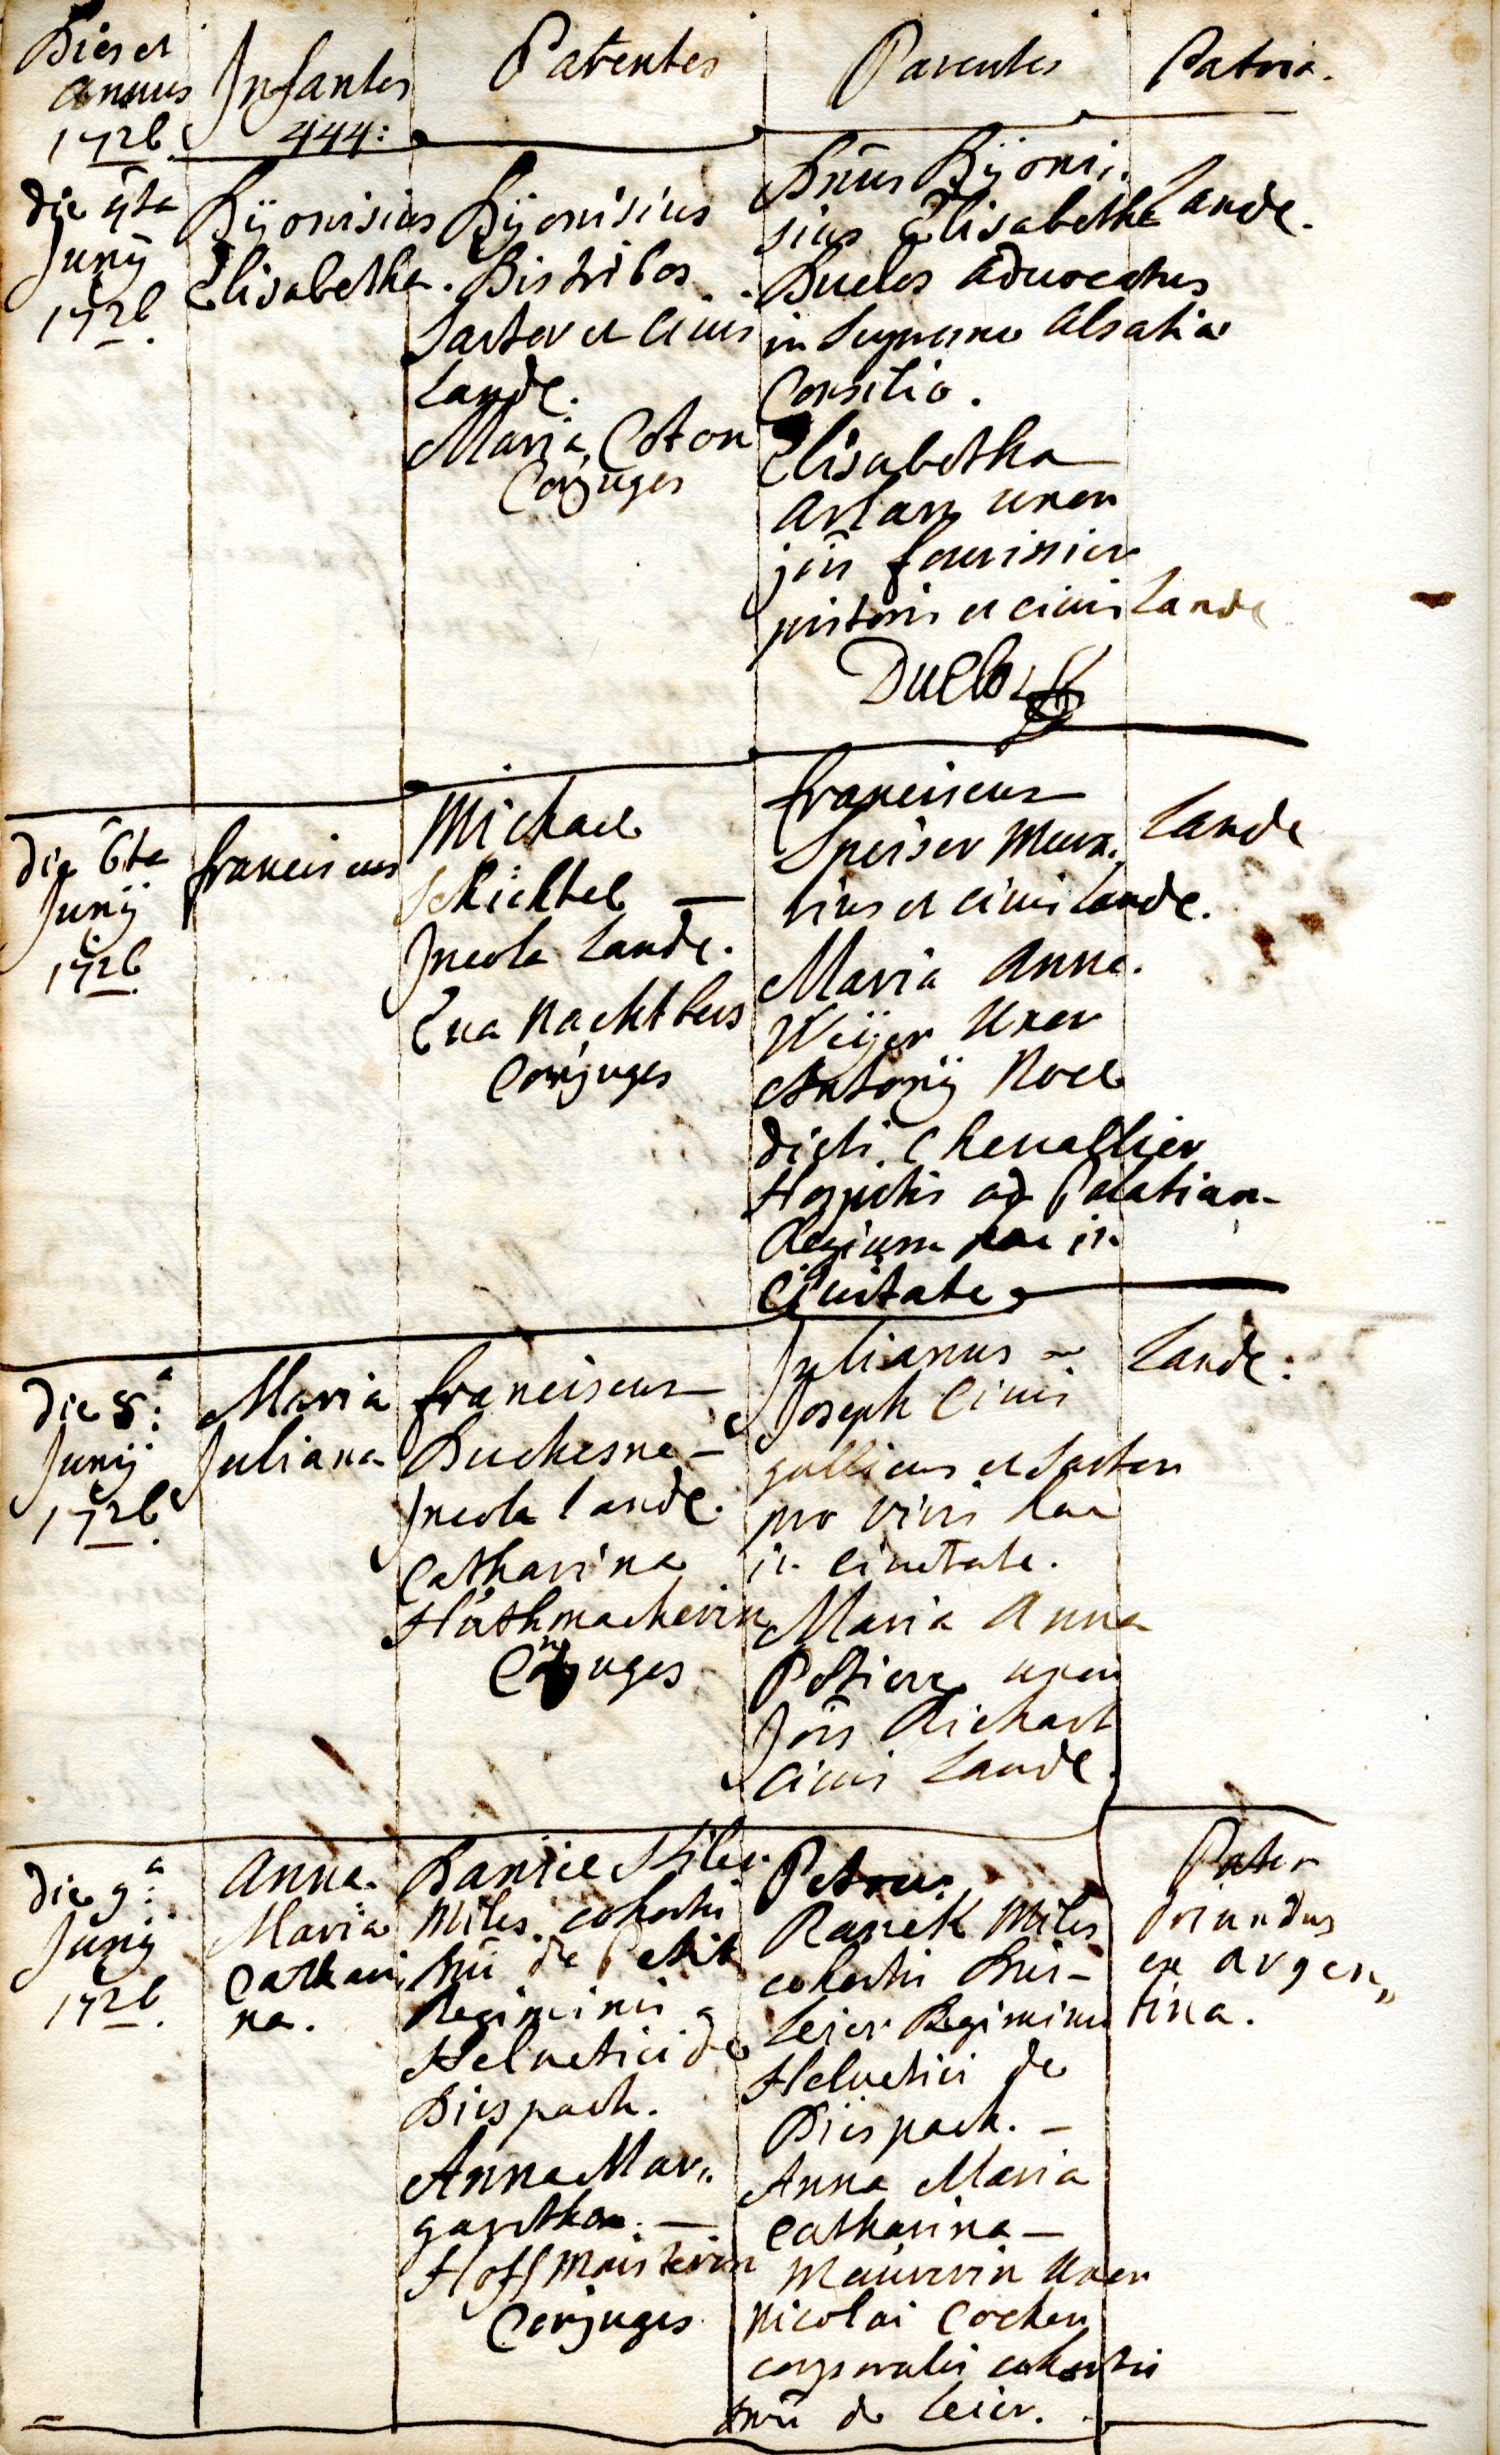 Dies et
annus
1726.
Infantes
444:
Parentes
Parentes
Patria.
die 4ta
Junÿ
1726.
Dÿonisius
Elisabetha.
Dÿonisius
Distribos
Sartor et Civis
Lande.
Maria Coton
Conjuges
Dnus Dÿoni.
sius Elisabetha
Duclos aduocatus
in Supremo Alsatiæ
Consilio.
Elisabetha
uxor
jois fourinier
pistoris et civis Lande
Duclos
Lande.
die 6ta
Junÿ
1726
franciscus
Michael
Schichtel —
Incola Lande.
Eva Nachtbus
Conjuges
franciscus
Speiser Mura.
rius et civis Lande.
Maria Anna.
Weÿer Uxor
Antonÿ Noel
dicti Chevallier
Hospitis ad Palatian-
Regium hac in
Civitate
Lande
die 8:a
Junÿ
1726.
Maria
Juliana
franciscus
Duchesne —
Incola Lande.
Catharina
Huthmacherin
Conjuges
Julianus
Joseph Civis
gallicus et Sartor
pro viris hac
in Civitate.
Maria Anna
Potiere uxor
Jois Richart
Civis Lande.
Lande:
die 9:a
Junÿ
1726.
Anna.
Maria
Cathari
na.
Daniel
Miles cohortis
Dnii de Petit
Regiminis
Helvetici de
Diespach.
Anna Mar„
garetha. —
Hoffmeisterin
Conjuges
Petrus
Ranek Miles
cohortis
Leier Regiminis
Helvetici de
Diespach. —
Anna Maria
Catharina —
Maurerin Uxor
Nicolai Cocher
corporalis cohortis
Dnii de Leier.
Pater
Oriundus
ex Argen„
tina.